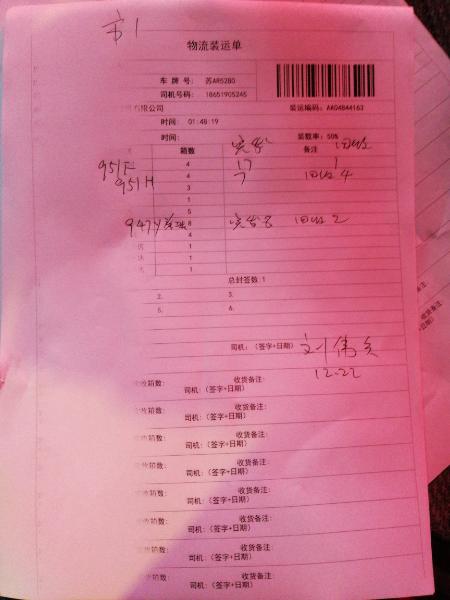 市1
物流装运单
车牌号: 苏AR5280
司机号码: 18651905245
有限公司 装运编码: AK04844163
时间: 01:48:19
时间: 装载率: 50%
箱数 实发 备注 回收
951F 4 17 1
951H 4 7 回收 4
3
1
5
947Y 8 实发 回收 2
4
1
1
1
总封签数:1
2. 3.
5. 6.
司机: (签字+日期) 刘伟
12-22
收箱数: 收货备注:
司机: (签字+日期)
收箱数: 收货备注:
司机: (签字+日期)
收箱数: 收货备注:
司机: (签字+日期)
收箱数: 收货备注:
司机: (签字+日期)
收箱数: 收货备注:
司机: (签字+日期)
收箱数: 收货备注:
司机: (签字+日期)
收箱数: 收货备注:
司机: (签字+日期)
收箱数: 收货备注:
司机: (签字+日期)